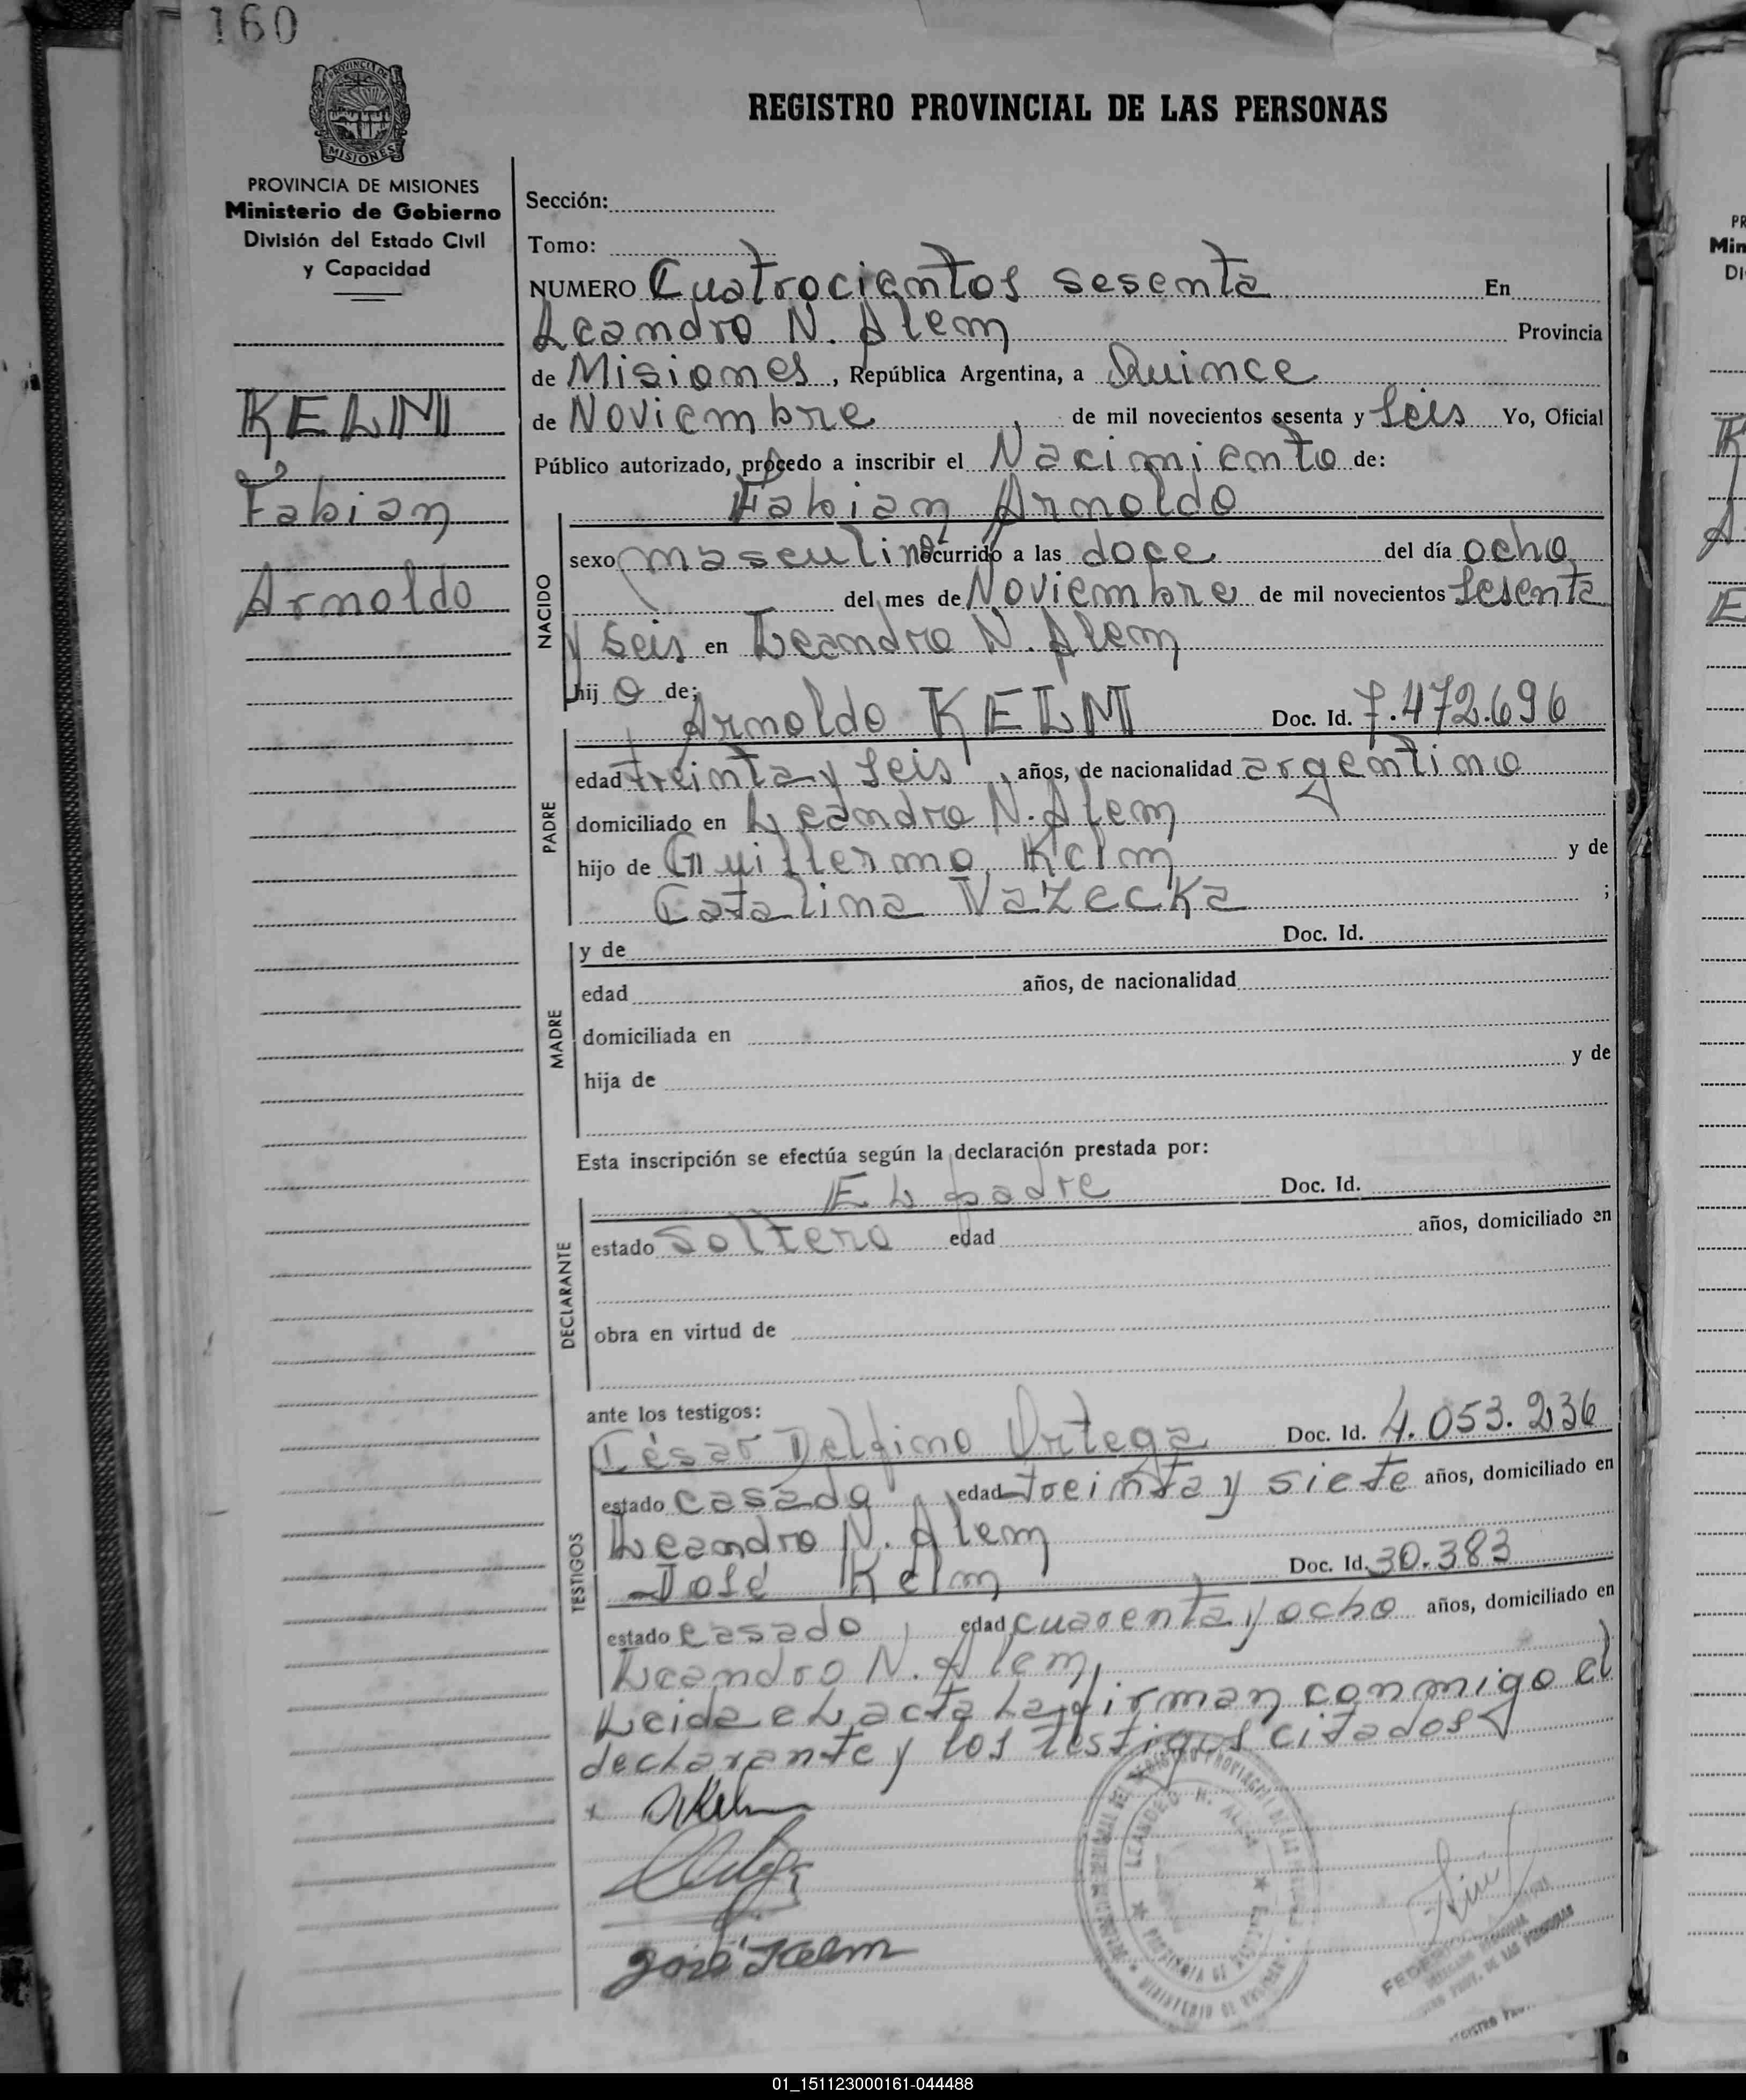 160
PROVINCIA DE
MISIONES
PROVINCIA DE MISIONES
Ministerio de Gobierno
División del Estado Civil
y Capacidad
KELM
Fabian
Arnoldo
REGISTRO PROVINCIAL DE LAS PERSONAS
Sección:
Tomo:
NUMERO Cuatrocientos sesenta En
Leandro N. Alem Provincia
de Misiones, República Argentina, a Quince
de Noviembre, de mil novecientos sesenta y Seis Yo, Oficial
Público autorizado, procedo a inscribir el Nacimiento de:
Fabian Arnoldo
NACIDO
sexo masculino ocurrido a las doce del día ocho
del mes de Noviembre de mil novecientos Sesenta
y Seis en Leandro N. Alem
hijo de:
Arnoldo KELM Doc. Id. 7.472.696
PADRE
edad treinta y Seis, años, de nacionalidad argentino
domiciliado en Leandro N. Alem
hijo de Guillermo Kelm y de
Catalina Vazecka ;
MADRE
y de Doc. Id.
edad años, de nacionalidad
domiciliada en
hija de y de
Esta inscripción se efectúa según la declaración prestada por:
DECLARANTE
EL padre Doc. Id.
estado Soltero edad años, domiciliado en
obra en virtud de
ante los testigos:
TESTIGOS
César Delfino Ortega Doc. Id. 4.053.236
estado casado, edad treinta y siete años, domiciliado en
Leandro N. Alem
José Kelm Doc. Id. 30.383
estado casado, edad cuarenta y ocho años, domiciliado en
Leandro N. Alem,
Leida eL acta La firman conmigo el
declarante y los testigos citados
José Kelm
LEANDRO N. ALEM
01_151123000161-044488